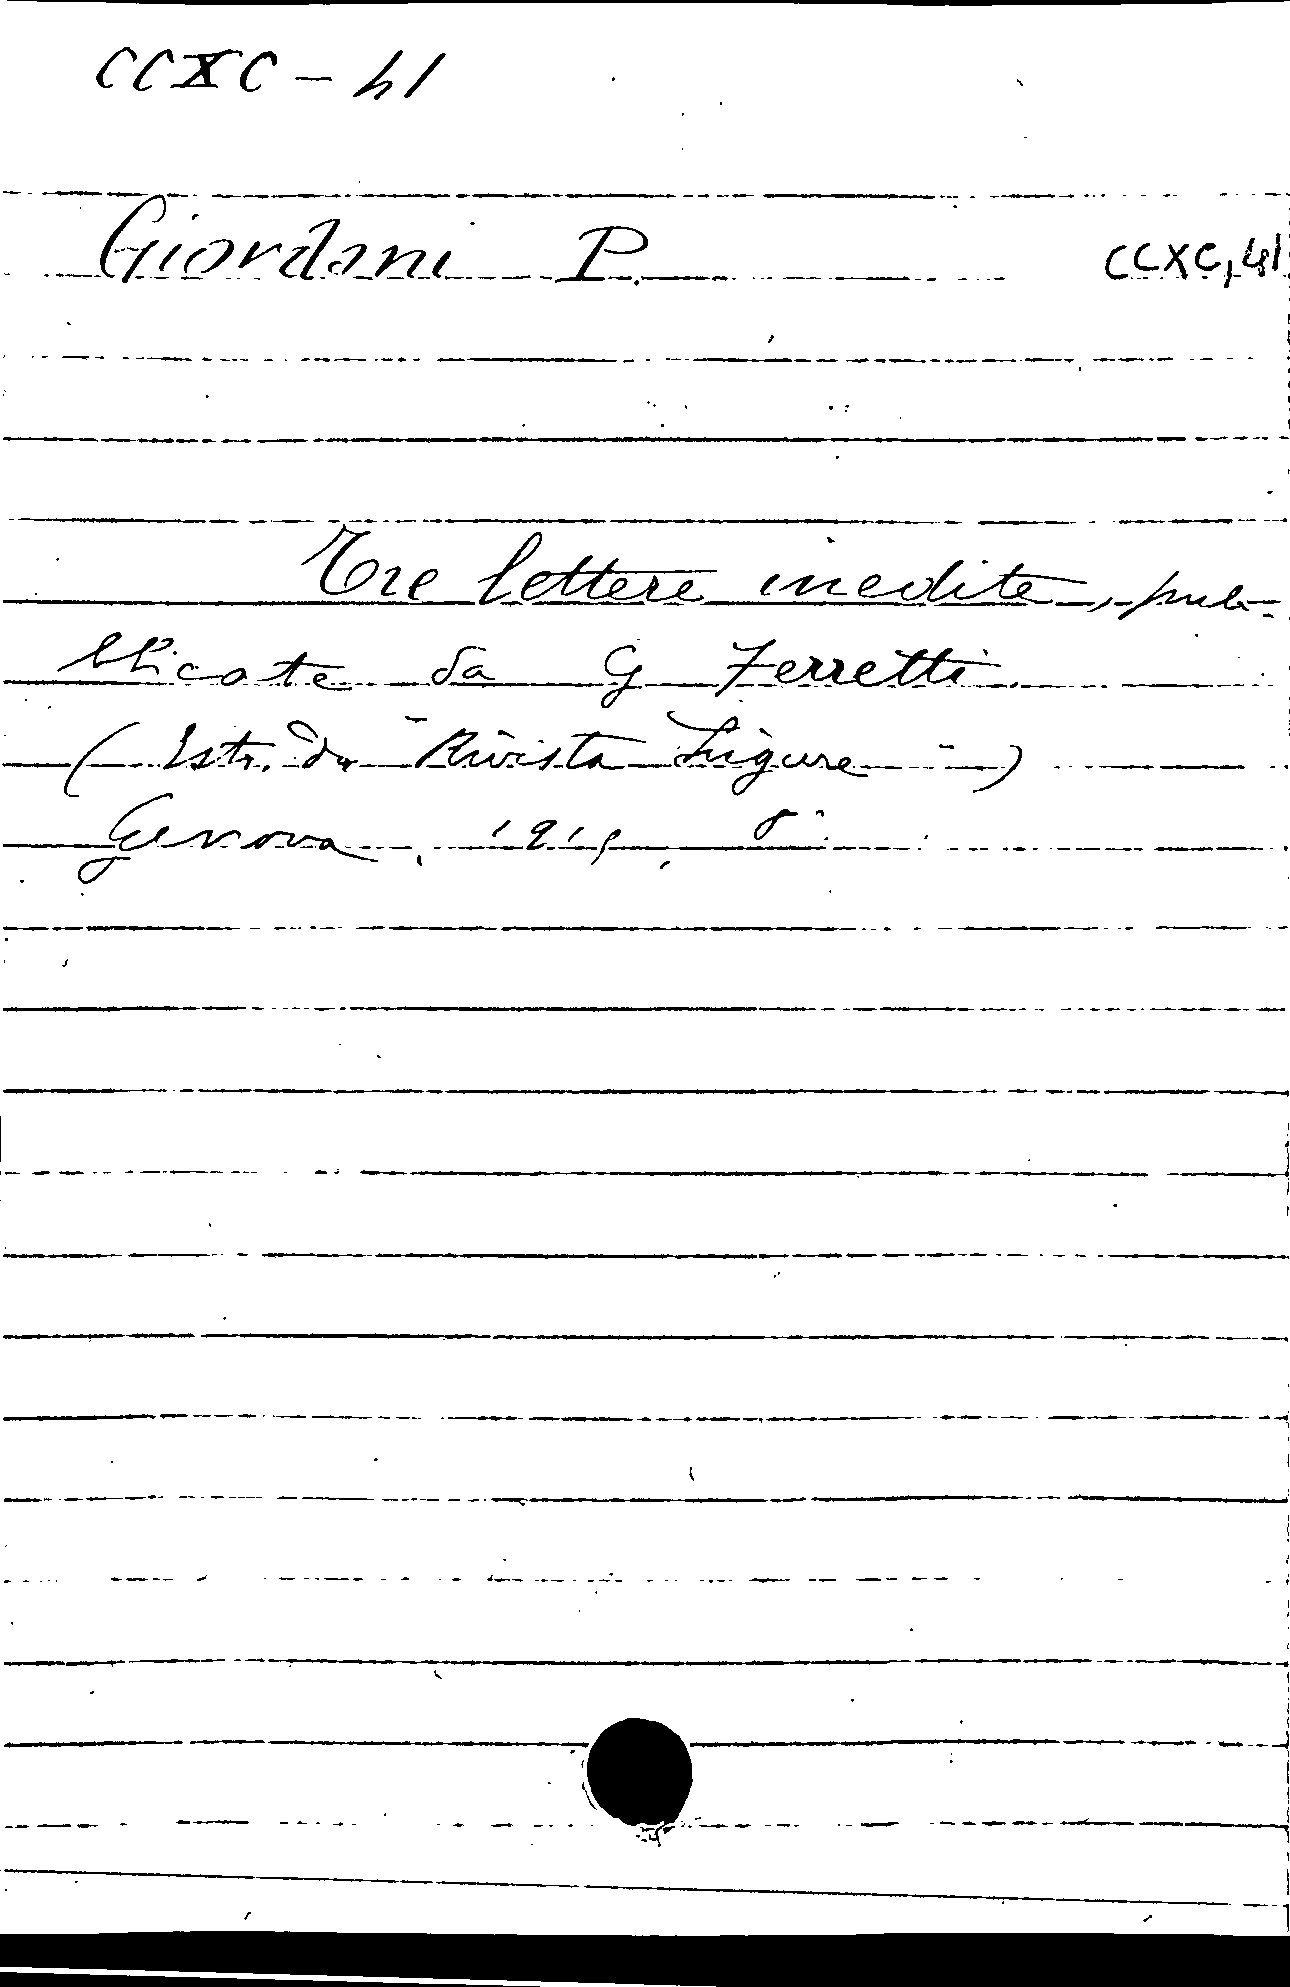 CCXC - 41
Giordani P. CCXC, 41
Tre lettere inedite, pub-
blicate da G Ferretti.
(Estr. da "Rivista Ligure")
Genova, 8°